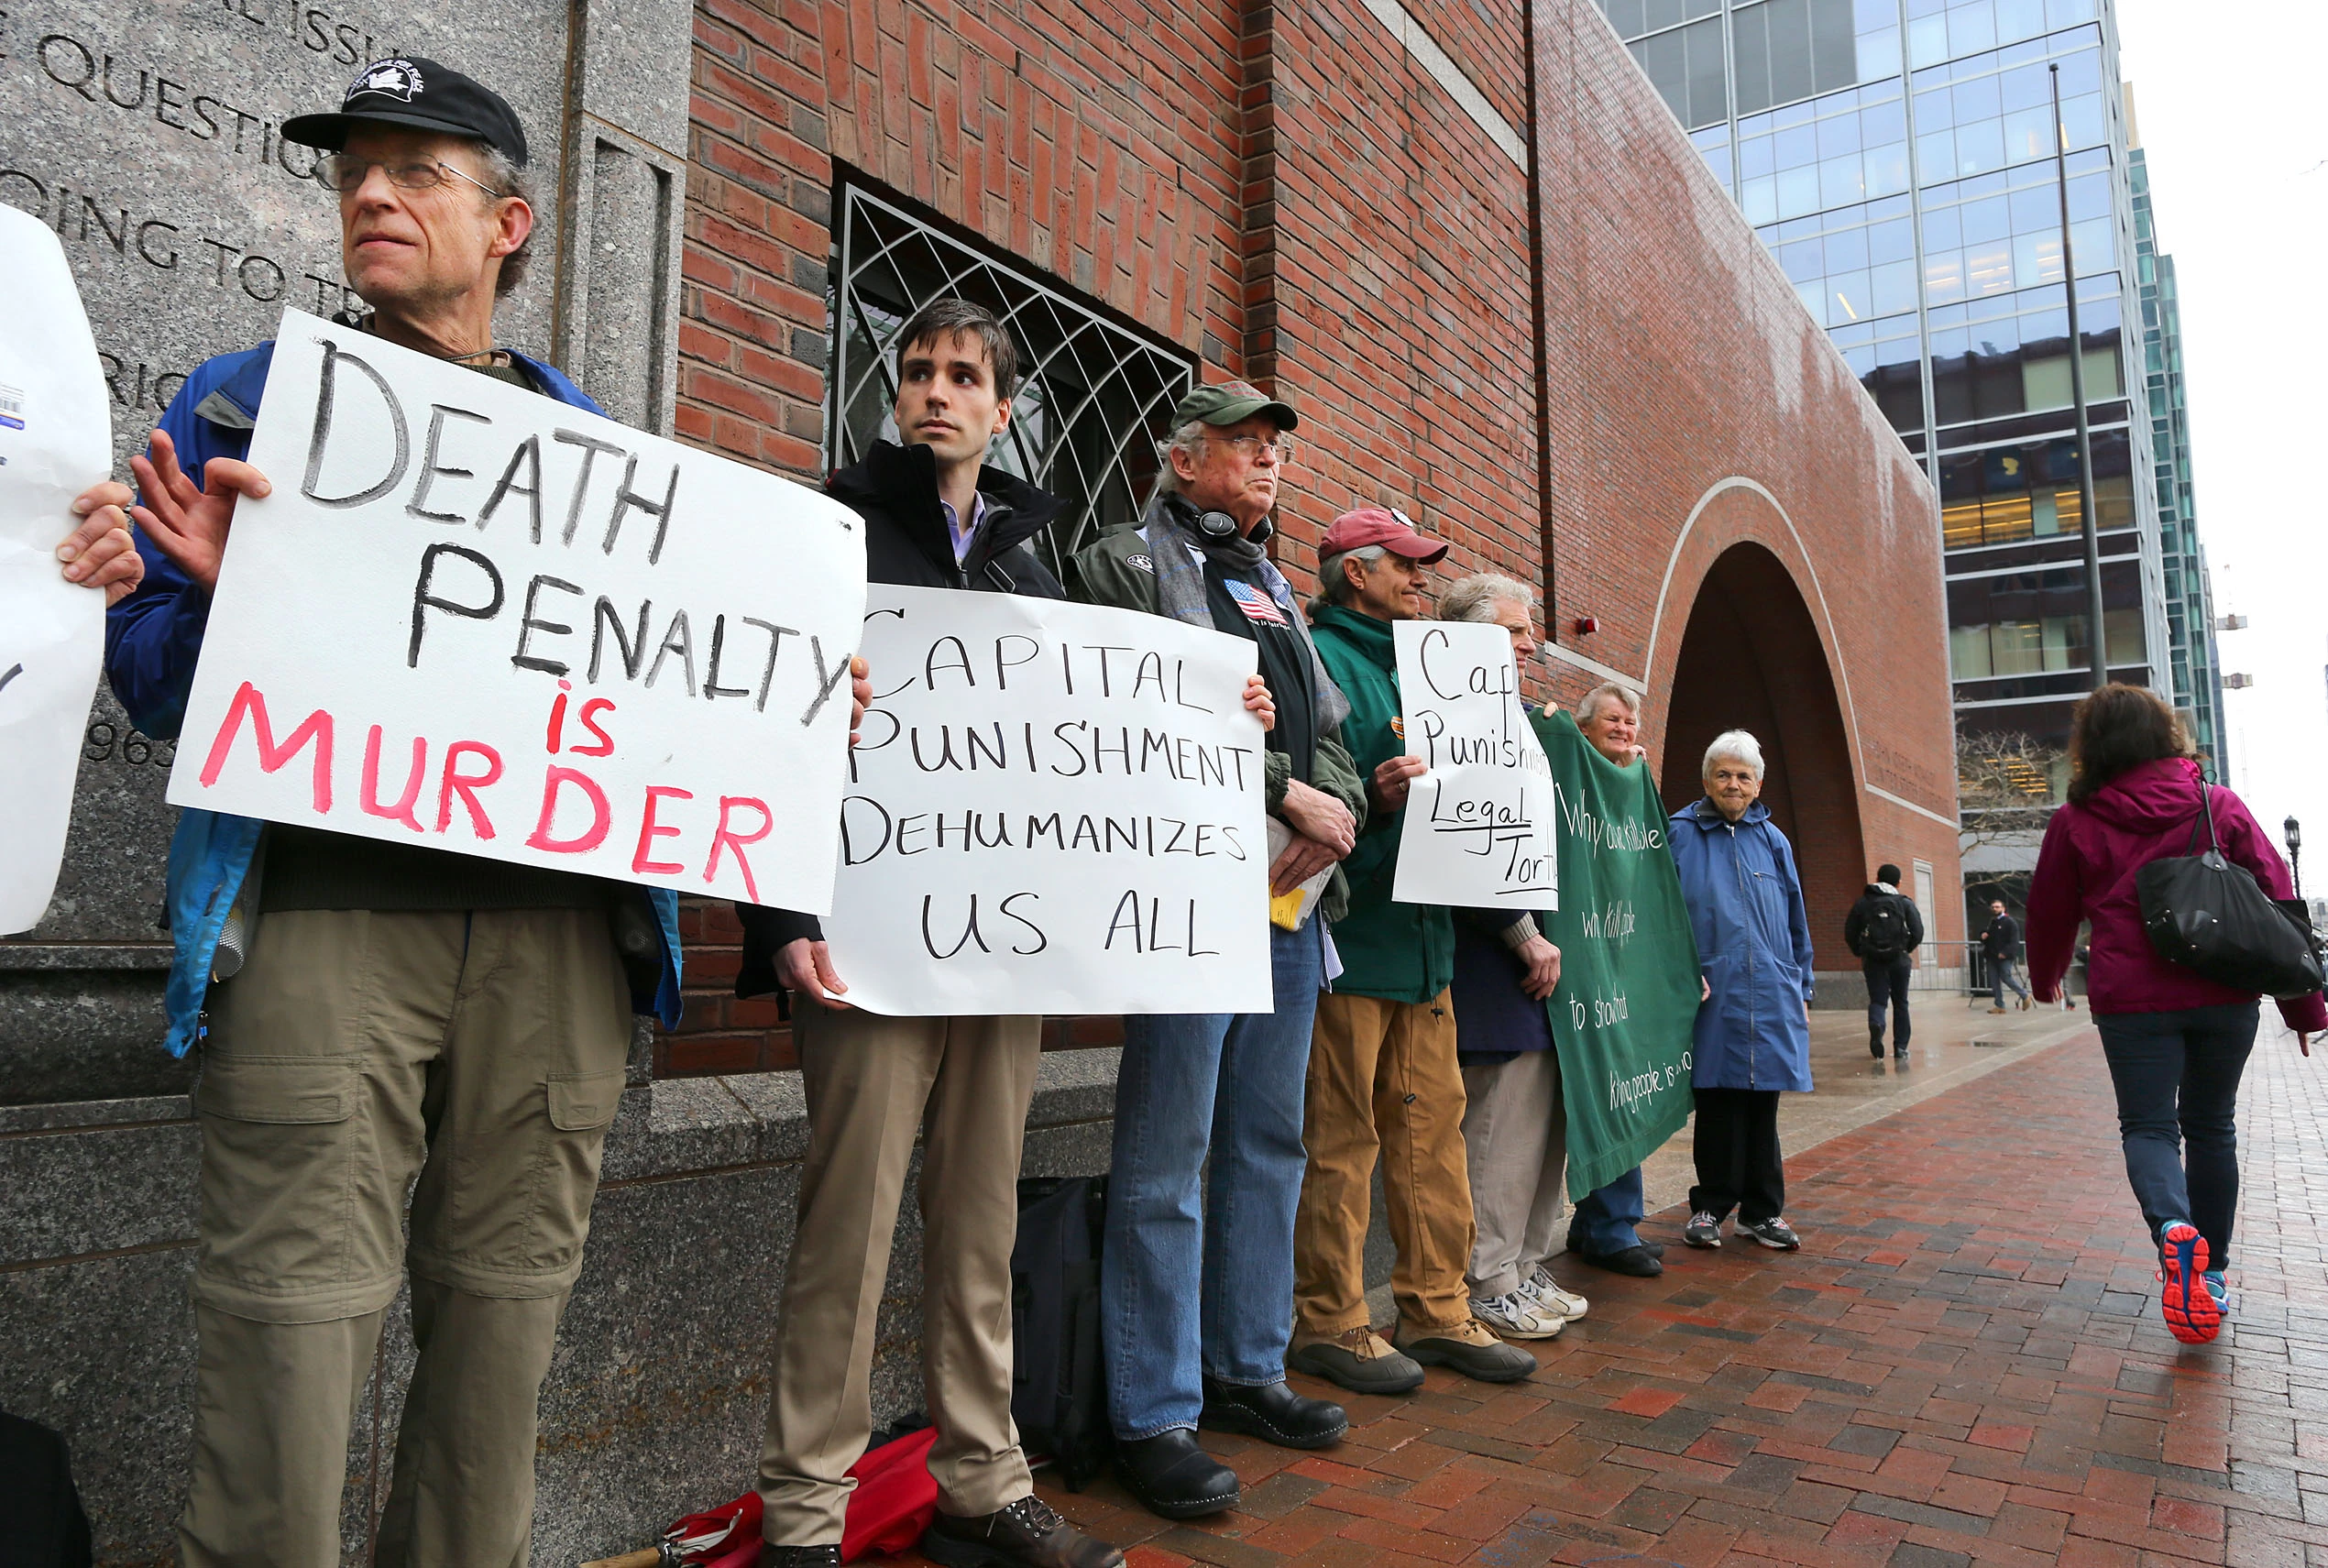 QUESTIO
OING TO
FOR PEACE
DEATH
PENALTY
is
MURDER
CAPITAL
PUNISHMENT
DEHUMANIZES
US ALL
Cap
Punishm
Legal
Tort
Why do we kill people
who kill people
to show that
killing people is